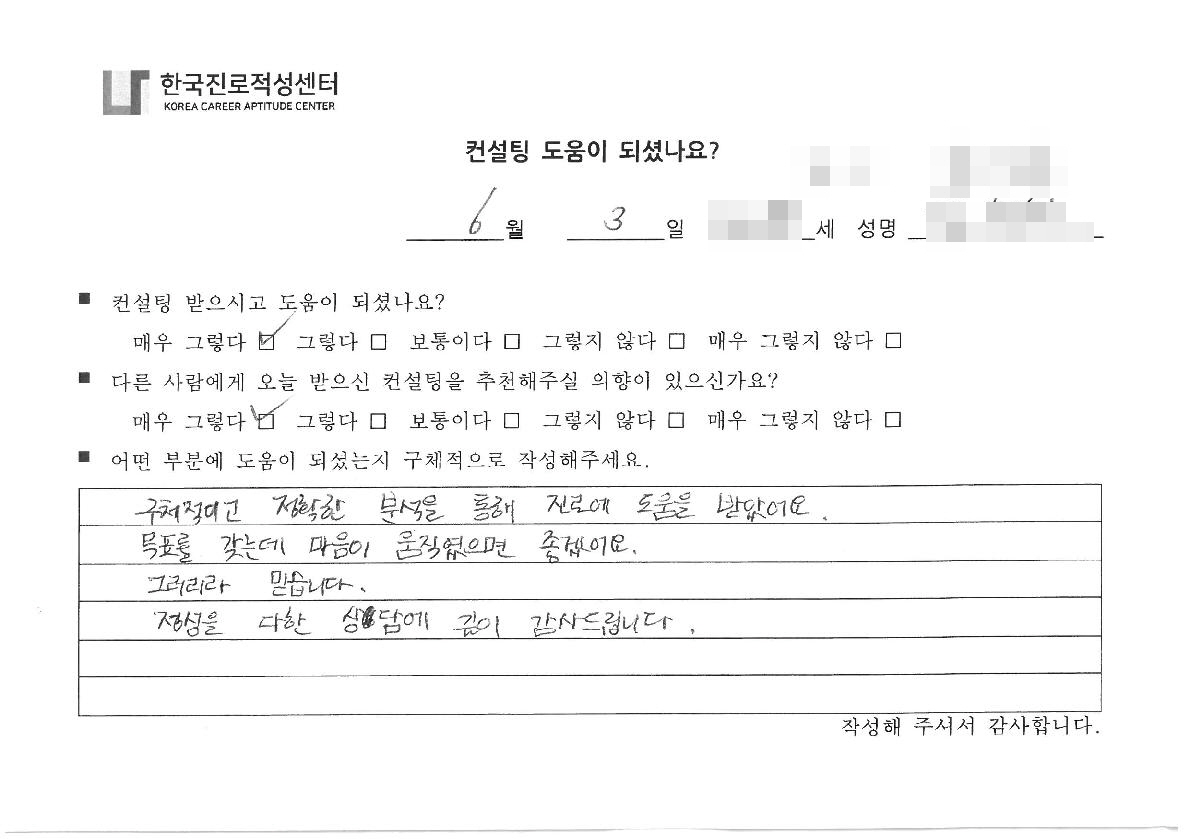 한국진로적성센터
KOREA CAREER APTITUDE CENTER
컨설팅 도움이 되셨나요?
6월 3일 세 성명
■ 컨설팅 받으시고 도움이 되셨나요?
매우 그렇다 ☑ 그렇다 □ 보통이다 □ 그렇지 않다 □ 매우 그렇지 않다 □
■ 다른 사람에게 오늘 받으신 컨설팅을 추천해주실 의향이 있으신가요?
매우 그렇다 ☑ 그렇다 □ 보통이다 □ 그렇지 않다 □ 매우 그렇지 않다 □
■ 어떤 부분에 도움이 되셨는지 구체적으로 작성해주세요.
구체적이고 정확한 분석을 통해 진로에 도움을 받았어요.
목표를 갖는데 마음이 움직였으면 좋겠어요.
그러리라 믿습니다.
정성을 다한 상담에 깊이 감사드립니다.
작성해 주셔서 감사합니다.